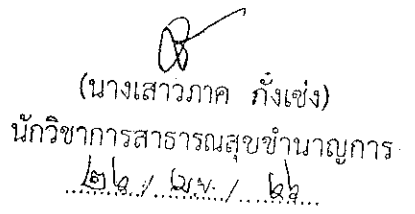 (นางเสาวภาค กั้งเซ่ง)
นักวิชาการสาธารณสุขชำนาญการ
๒๖ / เม.ย. / ๖๖